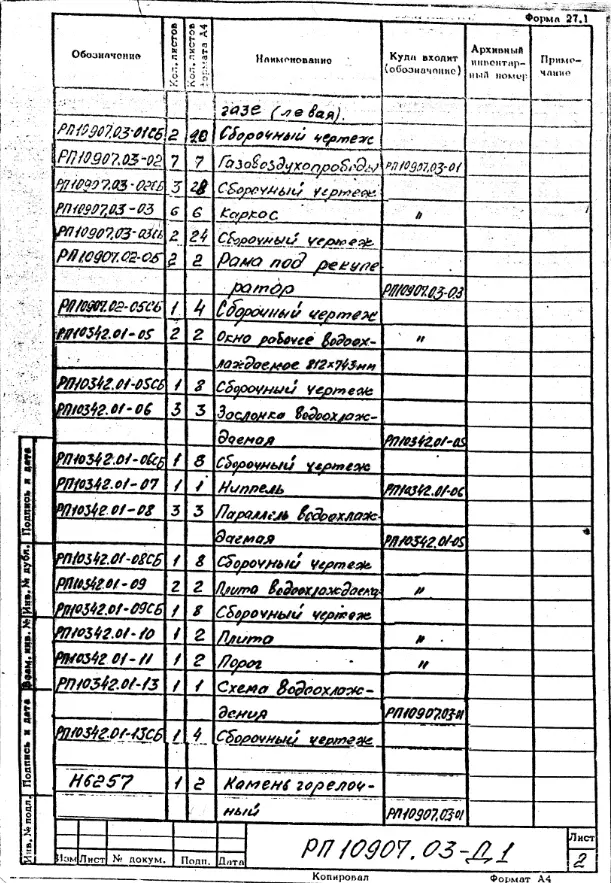 Форма 27.1
Обозначение Кол. листов Кол. листов формата А4 Наименование Куда входит (обозначение) Архивный инвентарный номер Примечание
газе (левая).
РП10907.03-01СБ 2 20 Сборочный чертеж
РП10907.03-02 7 7 Газовоздухопроводы РП10907.03-01
РП10907.03-02СБ 3 28 Сборочный чертеж
РП10907.03-03 6 6 Каркас "
РП10907.03-03СБ 2 24 Сборочный чертеж
РП10907.02-05 2 2 Рама под рекупе
ратор РП10907.03-03
РП10907.02-05СБ 1 4 Сборочный чертеж
РП10342.01-05 2 2 Окно рабочее водоох-
лаждаемое 812×743мм "
РП10342.01-05СБ 1 8 Сборочный чертеж
РП10342.01-06 3 3 Заслонка водоохлаж-
даемая РП10342.01-05
РП10342.01-06СБ 1 8 Сборочный чертеж
РП10342.01-07 1 1 Ниппель РП10342.01-06
РП10342.01-08 3 3 Параллель водоохлаж-
даемая РП10342.01-05
РП10342.01-08СБ 1 8 Сборочный чертеж
РП10342.01-09 2 2 Плита водоохлаждаема "
РП10342.01-09СБ 1 8 Сборочный чертеж
РП10342.01-10 1 2 Плита "
РП10342.01-11 1 2 Порог "
РП10342.01-13 1 1 Схема водоохлаж-
дения РП10907.03-01
РП10342.01-13СБ 1 4 Сборочный чертеж
Н6257 1 2 Камень горелоч-
ный РП10907.03-01
Инв. № подл. Подпись и дата Взам. инв. № Инв. № дубл. Подпись и дата
Изм Лист № докум. Подп. Дата
РП10907.03-Д1
Лист
2
Копировал Формат А4